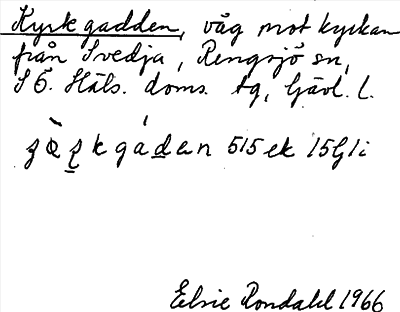 Kyrkgadden, väg mot kyrkan
från Svedja, Rengsjö sn,
S Ö. Häls. doms. tg, Gävl. l.
kgáden 515 ek 15G1i
Elsie Rondahl 1966